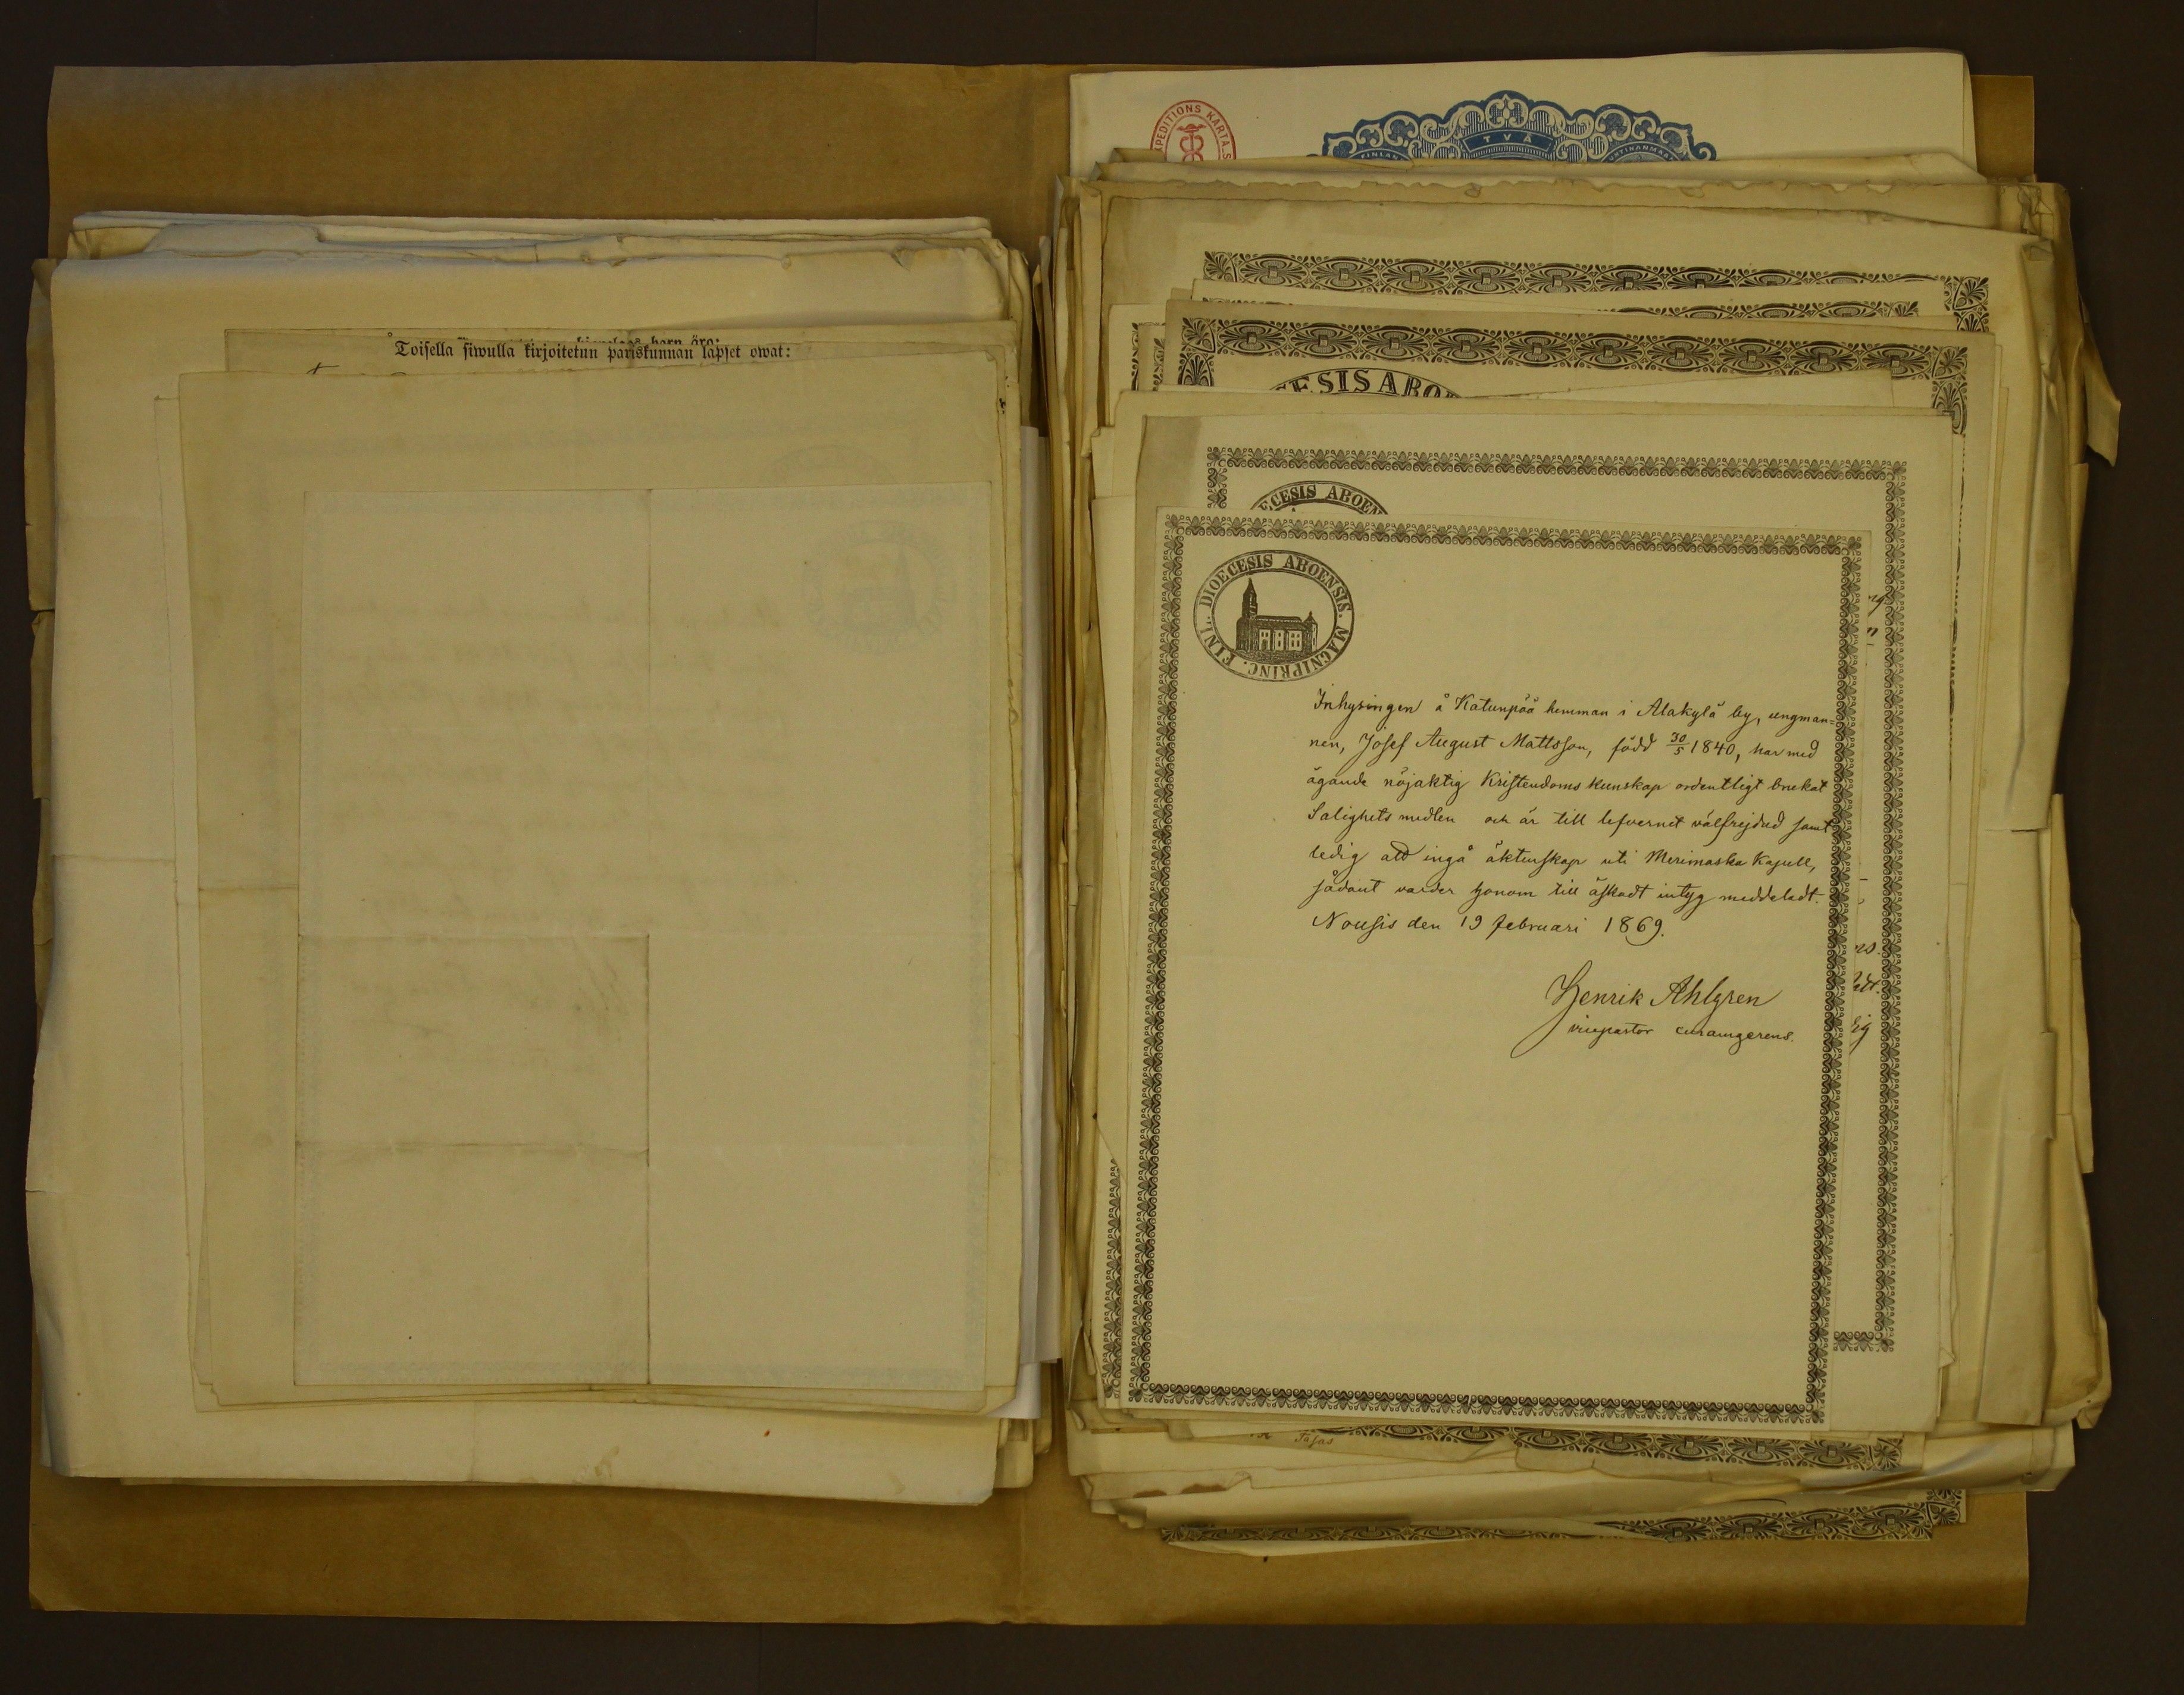 Toisella siwulla kirjoitetun pariskunnan lapset owat:
EXPEDITIONS KARTA. S
TVÅ
ESIS ABO
ECESIS ABOEN
DIOECESIS ABOENSIS. MAGNIPRINC. FINL.
Inhysingen å Katunpää hemman i Alakylä by, ungman=
nen, Josef August Mattsson, född 30/5 1840, har med
ägande nöjaktig Kristendoms kunskap ordentligt brukat
Salighets medlen och är till lefvernet välfrejdad samt
ledig att ingå äktenskap uti Merimasku Kapell,
sådant varder honom till äskadt intyg meddeladt.
Nousis den 19 Februari 1869.
Henrik Ahlgren
vicepastor curamgerens.